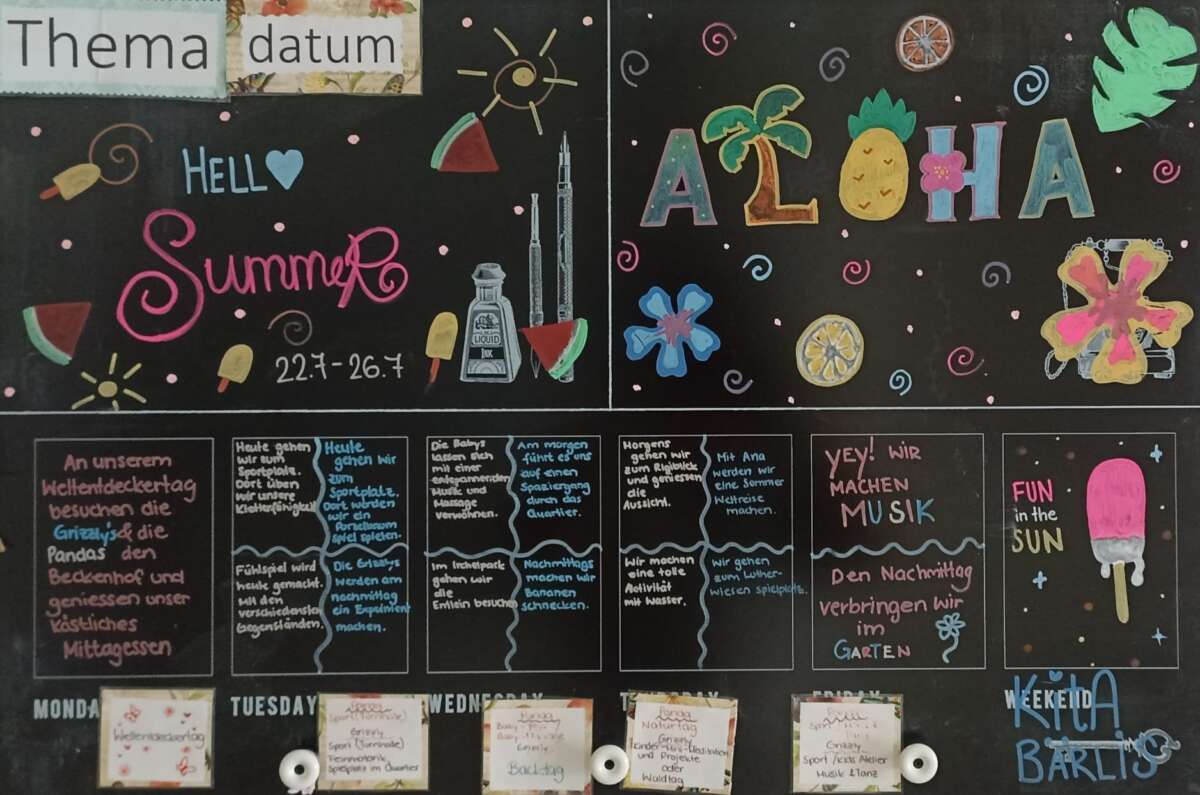 Thema
datum
HELLO
SUMMER
22.7-26.7
LIQUID
INK
ALOHA
An unserem
Weltentdeckertag
besuchen die
Grizzly's & die
Pandas den
Beckenhof und
geniessen unser
köstliches
Mittagessen
Heute gehen
wir zum
Sportplatz.
Dort üben
wir unsere
Heute
gehen wir
zum
Sportplatz.
Dort werden
wir ein
spiel spielen.
Fühlspiel wird
heute gemacht.
Mit den
Gegenständen.
Die Grizzlys
werden am
nachmittag
ein Experiment
machen.
Die Babys
lassen sich
mit einer
entspannenden
Musik und
Massage
verwöhnen.
Am morgen
führt es uns
auf einen
Spaziergang
durch das
Quartier.
Im Irchelpark
gehen wir
die
Entlein besuchen
Nachmittags
machen wir
Bananen
schnecken.
Morgens
gehen wir
zum Rigiblick
und geniessen
die
Aussicht.
Mit Ana
werden wir
eine Sommer
Weltreise
machen.
Wir machen
eine tolle
Aktivität
mit Wasser.
Wir gehen
zum Luther-
wiesen spielplatz.
YEY! WIR
MACHEN
MUSIK
Den Nachmittag
verbringen wir
im
GARTEN
FUN
in the
SUN
MONDA
TUESDAY
WEDNESDAY
THURSDAY
FRIDAY
WEEKEND
Weltentdeckertag
Panda
Sport (Turnhalle)
Grizzly
Sport (Turnhalle)
Feinmotorik
Spielplatz im Quartier
Panda
Grizzly
Backtag
Panda
Naturtag
Grizzly
Kinder-Mini-Meditation
und Projekte
oder
Waldtag
Panda
Grizzly
Sport /Kids Atelier
Musik & Tanz
KitA
BÄRLIS